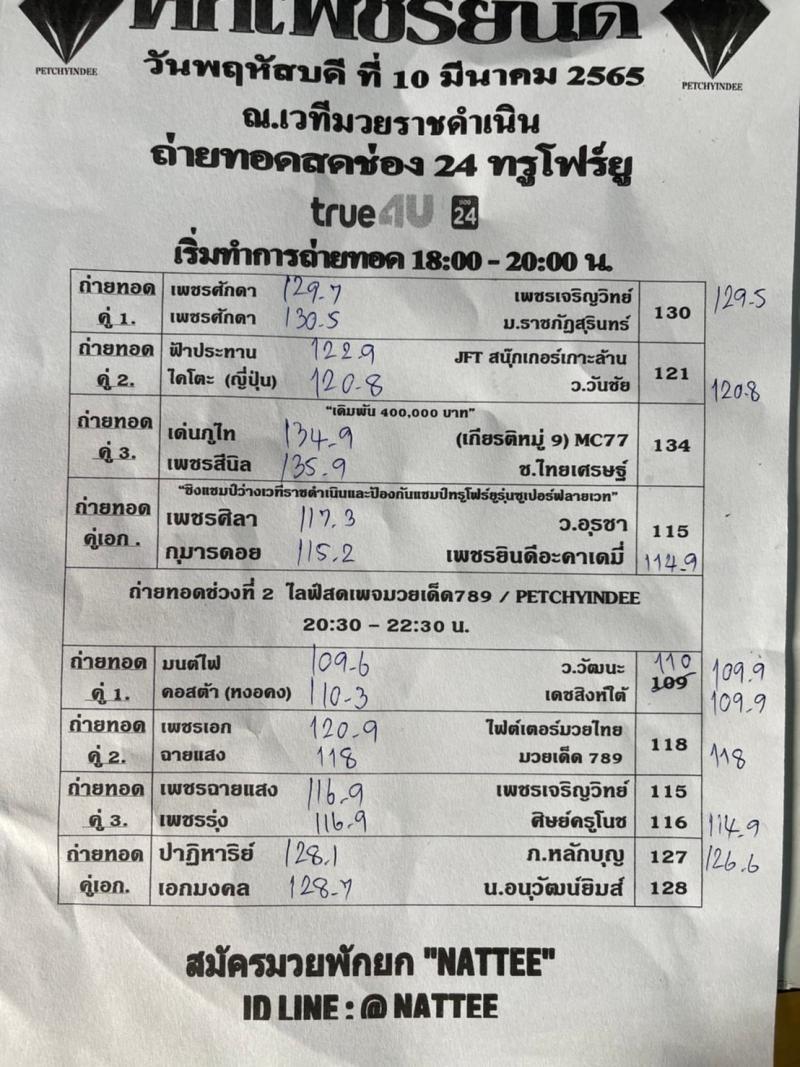 ศึกเพชรยินดี
PETCHYINDEE PETCHYINDEE
วันพฤหัสบดี ที่ 10 มีนาคม 2565
ณ.เวทีมวยราชดำเนิน
ถ่ายทอดสดช่อง 24 ทรูโฟร์ยู
true4U ช่อง 24
เริ่มทำการถ่ายทอด 18:00 - 20:00 น.
ถ่ายทอด เพชรศักดา 129.7 เพชรเจริญวิทย์ 130 129.5
คู่ 1. เพชรศักดา 130.5 ม.ราชภัฏสุรินทร์
ถ่ายทอด ฟ้าประทาน 122.9 JFT สนุ๊กเกอร์เกาะล้าน 121
คู่ 2. ไคโตะ (ญี่ปุ่น) 120.8 ว.วันชัย 120.8
"เดิมพัน 400,000 บาท"
ถ่ายทอด เด่นภูไท 134.9 (เกียรติหมู่ 9) MC77 134
คู่ 3. เพชรสีนิล 135.9 ช.ไทยเศรษฐ์
"ชิงแชมป์ว่างเวทีราชดำเนินและป้องกันแชมป์ทรูโฟร์ยูรุ่นซูเปอร์ฟลายเวท"
ถ่ายทอด เพชรศิลา 117.3 ว.อุรชา 115
คู่เอก. กุมารดอย 115.2 เพชรยินดีอะคาเดมี่ 114.9
ถ่ายทอดช่วงที่ 2 ไลฟ์สดเพจมวยเด็ด789 / PETCHYINDEE
20:30 - 22:30 น.
ถ่ายทอด มนต์ไฟ 109.6 ว.วัฒนะ 110 109.9
คู่ 1. คอสต้า (ทงอคง) 110.3 เดชสิงห์ใต้ 109 109.9
ถ่ายทอด เพชรเอก 120.9 ไฟต์เตอร์มวยไทย 118
คู่ 2. ฉายแสง 118 มวยเด็ด 789 118
ถ่ายทอด เพชรฉายแสง 116.9 เพชรเจริญวิทย์ 115
คู่ 3. เพชรรุ่ง 116.9 ศิษย์ครูโนช 116 114.9
ถ่ายทอด ปาฏิหาริย์ 128.1 ภ.หลักบุญ 127 126.6
คู่เอก. เอกมงคล 128.7 น.อนุวัฒน์ยิมส์ 128
สมัครมวยพักยก "NATTEE"
ID LINE : @ NATTEE